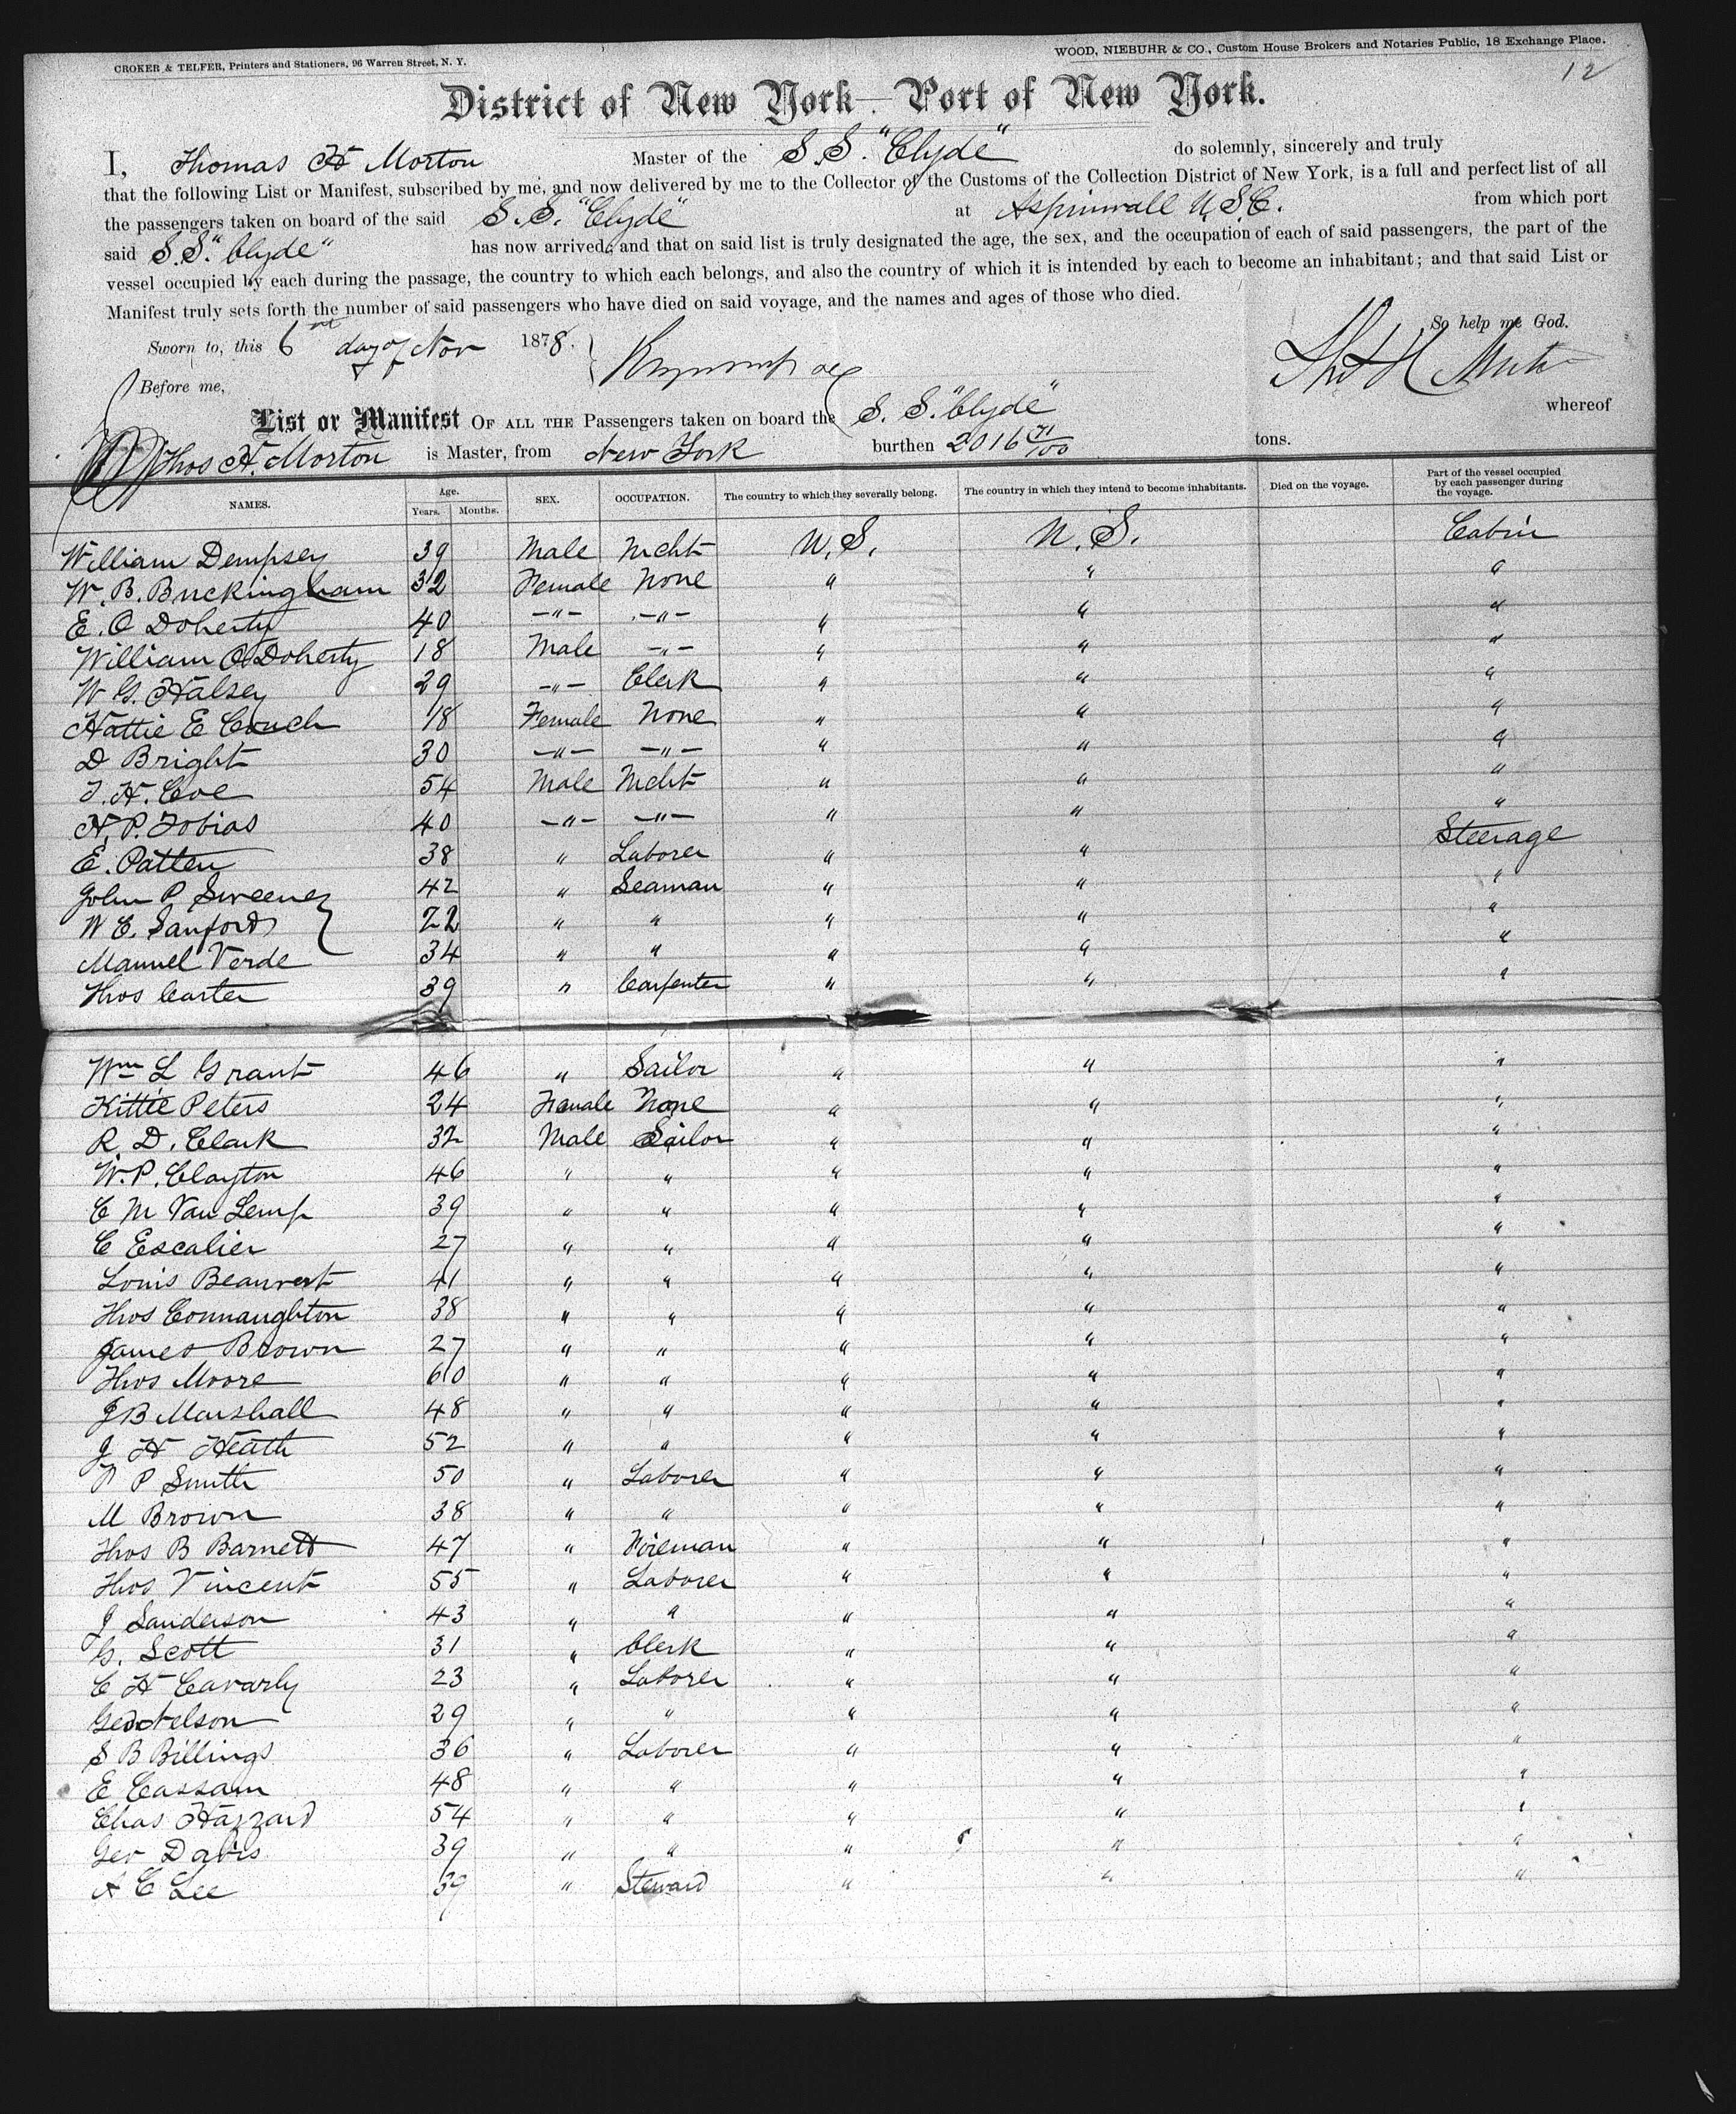 CROKER & TELFER, Printers and Stationers, 96 Warren Street, N. Y.
WOOD, NIEBUHR & CO., Custom House Brokers and Notaries Public, 18 Exchange Place.
12
District of New York—Port of New York.
I, Thomas H Morton Master of the S.S. "Clyde" do solemnly, sincerely and truly
that the following List or Manifest, subscribed by me, and now delivered by me to the Collector of the Customs of the Collection District of New York, is a full and perfect list of all
the passengers taken on board of the said S.S. "Clyde" at Aspinwall U.S.C. from which port
said S.S. "Clyde" has now arrived; and that on said list is truly designated the age, the sex, and the occupation of each of said passengers, the part of the
vessel occupied by each during the passage, the country to which each belongs, and also the country of which it is intended by each to become an inhabitant; and that said List or
Manifest truly sets forth the number of said passengers who have died on said voyage, and the names and ages of those who died.
So help me God.
Sworn to, this 6 day of Nov 1878.
Before me,
List or Manifest OF ALL THE Passengers taken on board the S. S. "Clyde" whereof
Thos H. Morton is Master, from New York burthen 2016 71/100 tons.
NAMES. Age. Years. Months. SEX. OCCUPATION. The country to which they severally belong. The country in which they intend to become inhabitants. Died on the voyage. Part of the vessel occupied by each passenger during the voyage.
William Dempsey 39 Male Mcht U.S. U.S. Cabin
W. B. Buckingham 32 Female None " " "
E. O Doherty 40 -"- -"- " " "
William O Doherty 18 Male -"- " " "
W G. Halsey 29 -"- Clerk " " "
Hattie E Couch 18 Female None " " "
D Bright 30 -"- -"- " " "
J. H. Coe 54 Male Mcht " " "
H. P. Tobias 40 -"- -"- " " "
E. Patten 38 " Laborer " " Steerage
John P Sweeney 42 " Seaman " " "
W E. Sanford 22 " " " " "
Manuel Verde 34 " " " " "
Thos Carter 39 " Carpenter " " "
Wm L Grant 46 " Sailor " " "
Kittie Peters 24 Female None " " "
R. D. Clark 32 Male Sailor " " "
W. P. Clayton 46 " " " " "
C M Van Lemp 39 " " " " "
C Escalier 27 " " " " "
Louis Beauvert 41 " " " " "
Thos Connaughton 38 " " " " "
James Brown 27 " " " " "
Thos Moore 60 " " " " "
J B Marshall 48 " " " " "
J H Heath 52 " " " " "
P Smith 50 " Laborer " " "
M Brown 38 " " " " "
Thos B Barnett 47 " Fireman " " "
Thos Vincent 55 " Laborer " " "
J Sanderson 43 " " " " "
G. Scott 31 " Clerk " " "
C H Cavarly 23 " Laborer " " "
Geo Nelson 29 " " " " "
S B Billings 36 " Laborer " " "
E Cassam 48 " " " " "
Chas Hazzard 54 " " " " "
Geo Davis 39 " " " " "
A C Lee 39 " Steward " " "